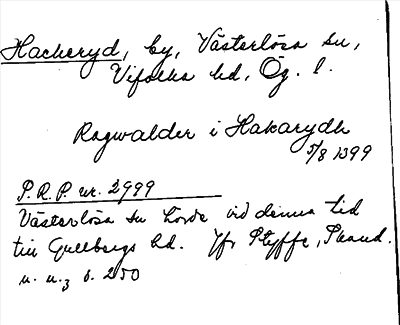 Hackeryd, by, Västerlösa sn,
Vifolka hd, Ög. l.
Ragwalder i Hakarydh
5/8 1399
P.R.P. nr. 2999
Västerlösa sn horde vid denna tid
till Gullbergs hd. Jfr Styffe, Skand.
u. u. 3 s. 250